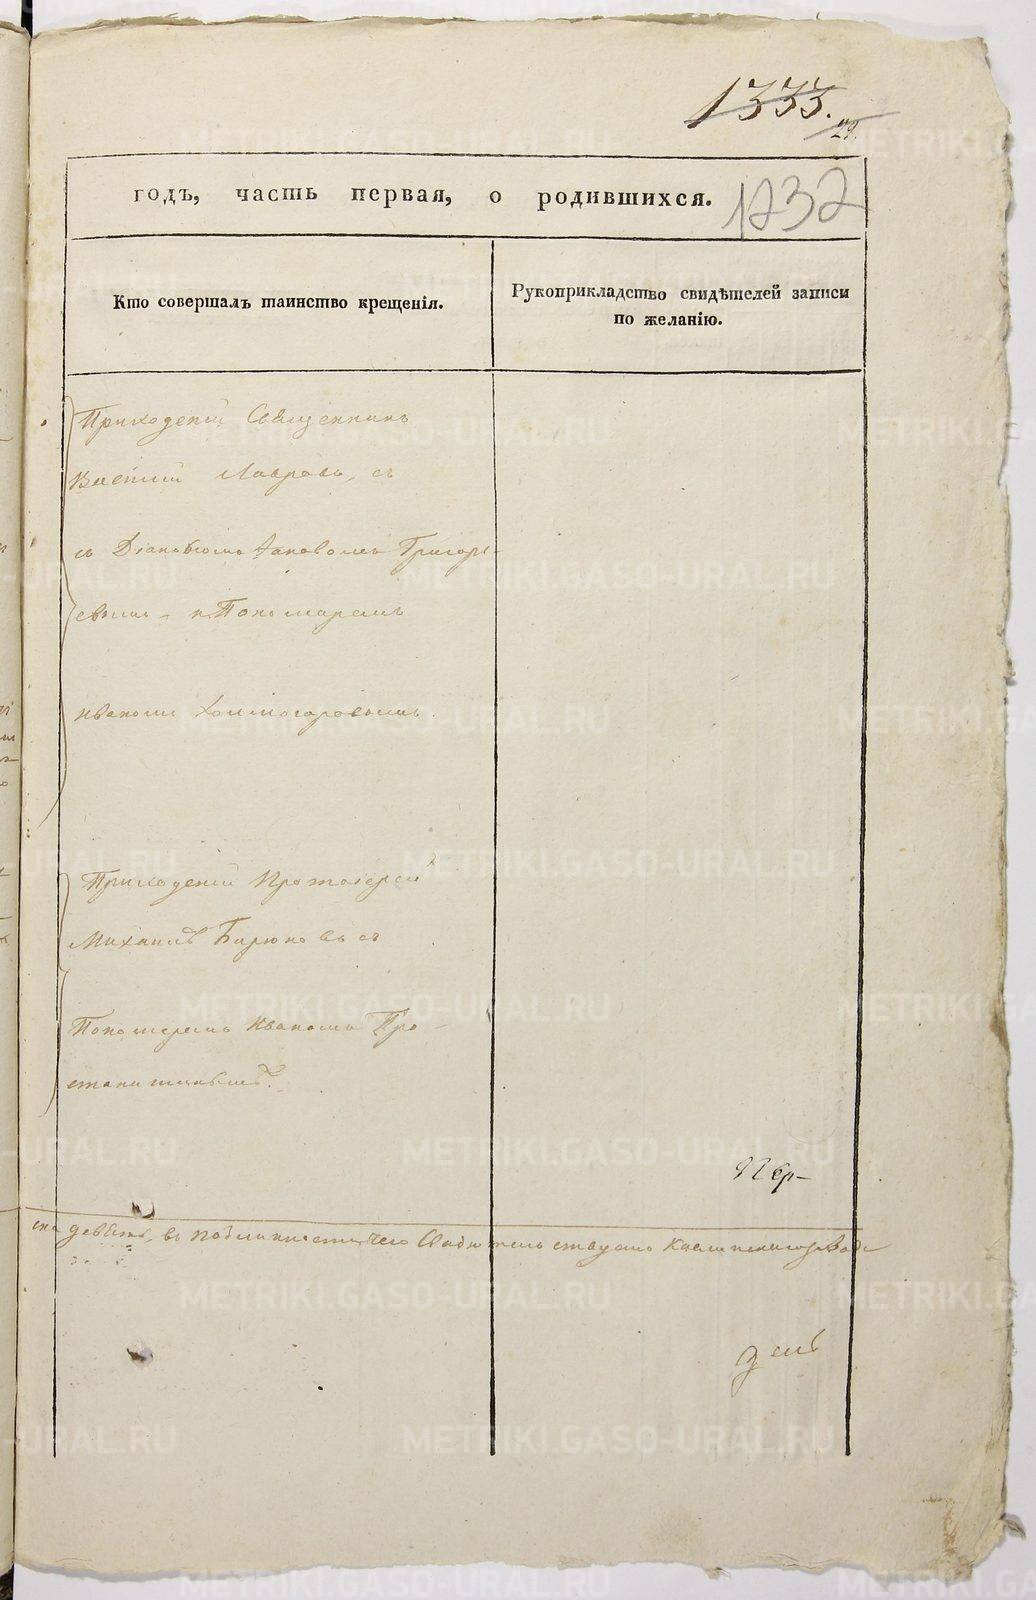 1333.
29.
годъ, часть первая, о родившихся.
1232
Кто совершалъ таинство крещенія.
Рукоприкладство свидѣтелей записи
по желанію.
Приходскій Священникъ
Василій Лавровъ, съ
съ Діакономъ Григорь-
евымъ и Пономаремъ
Иваномъ Холмогоровымъ.
Приходскій Протоіерей
Михаилъ Бирюковъ съ
Пономаремъ Иваномъ Про-
Пер-
девять, въ подлинности чего
METRIKI.GASO-URAL.RU